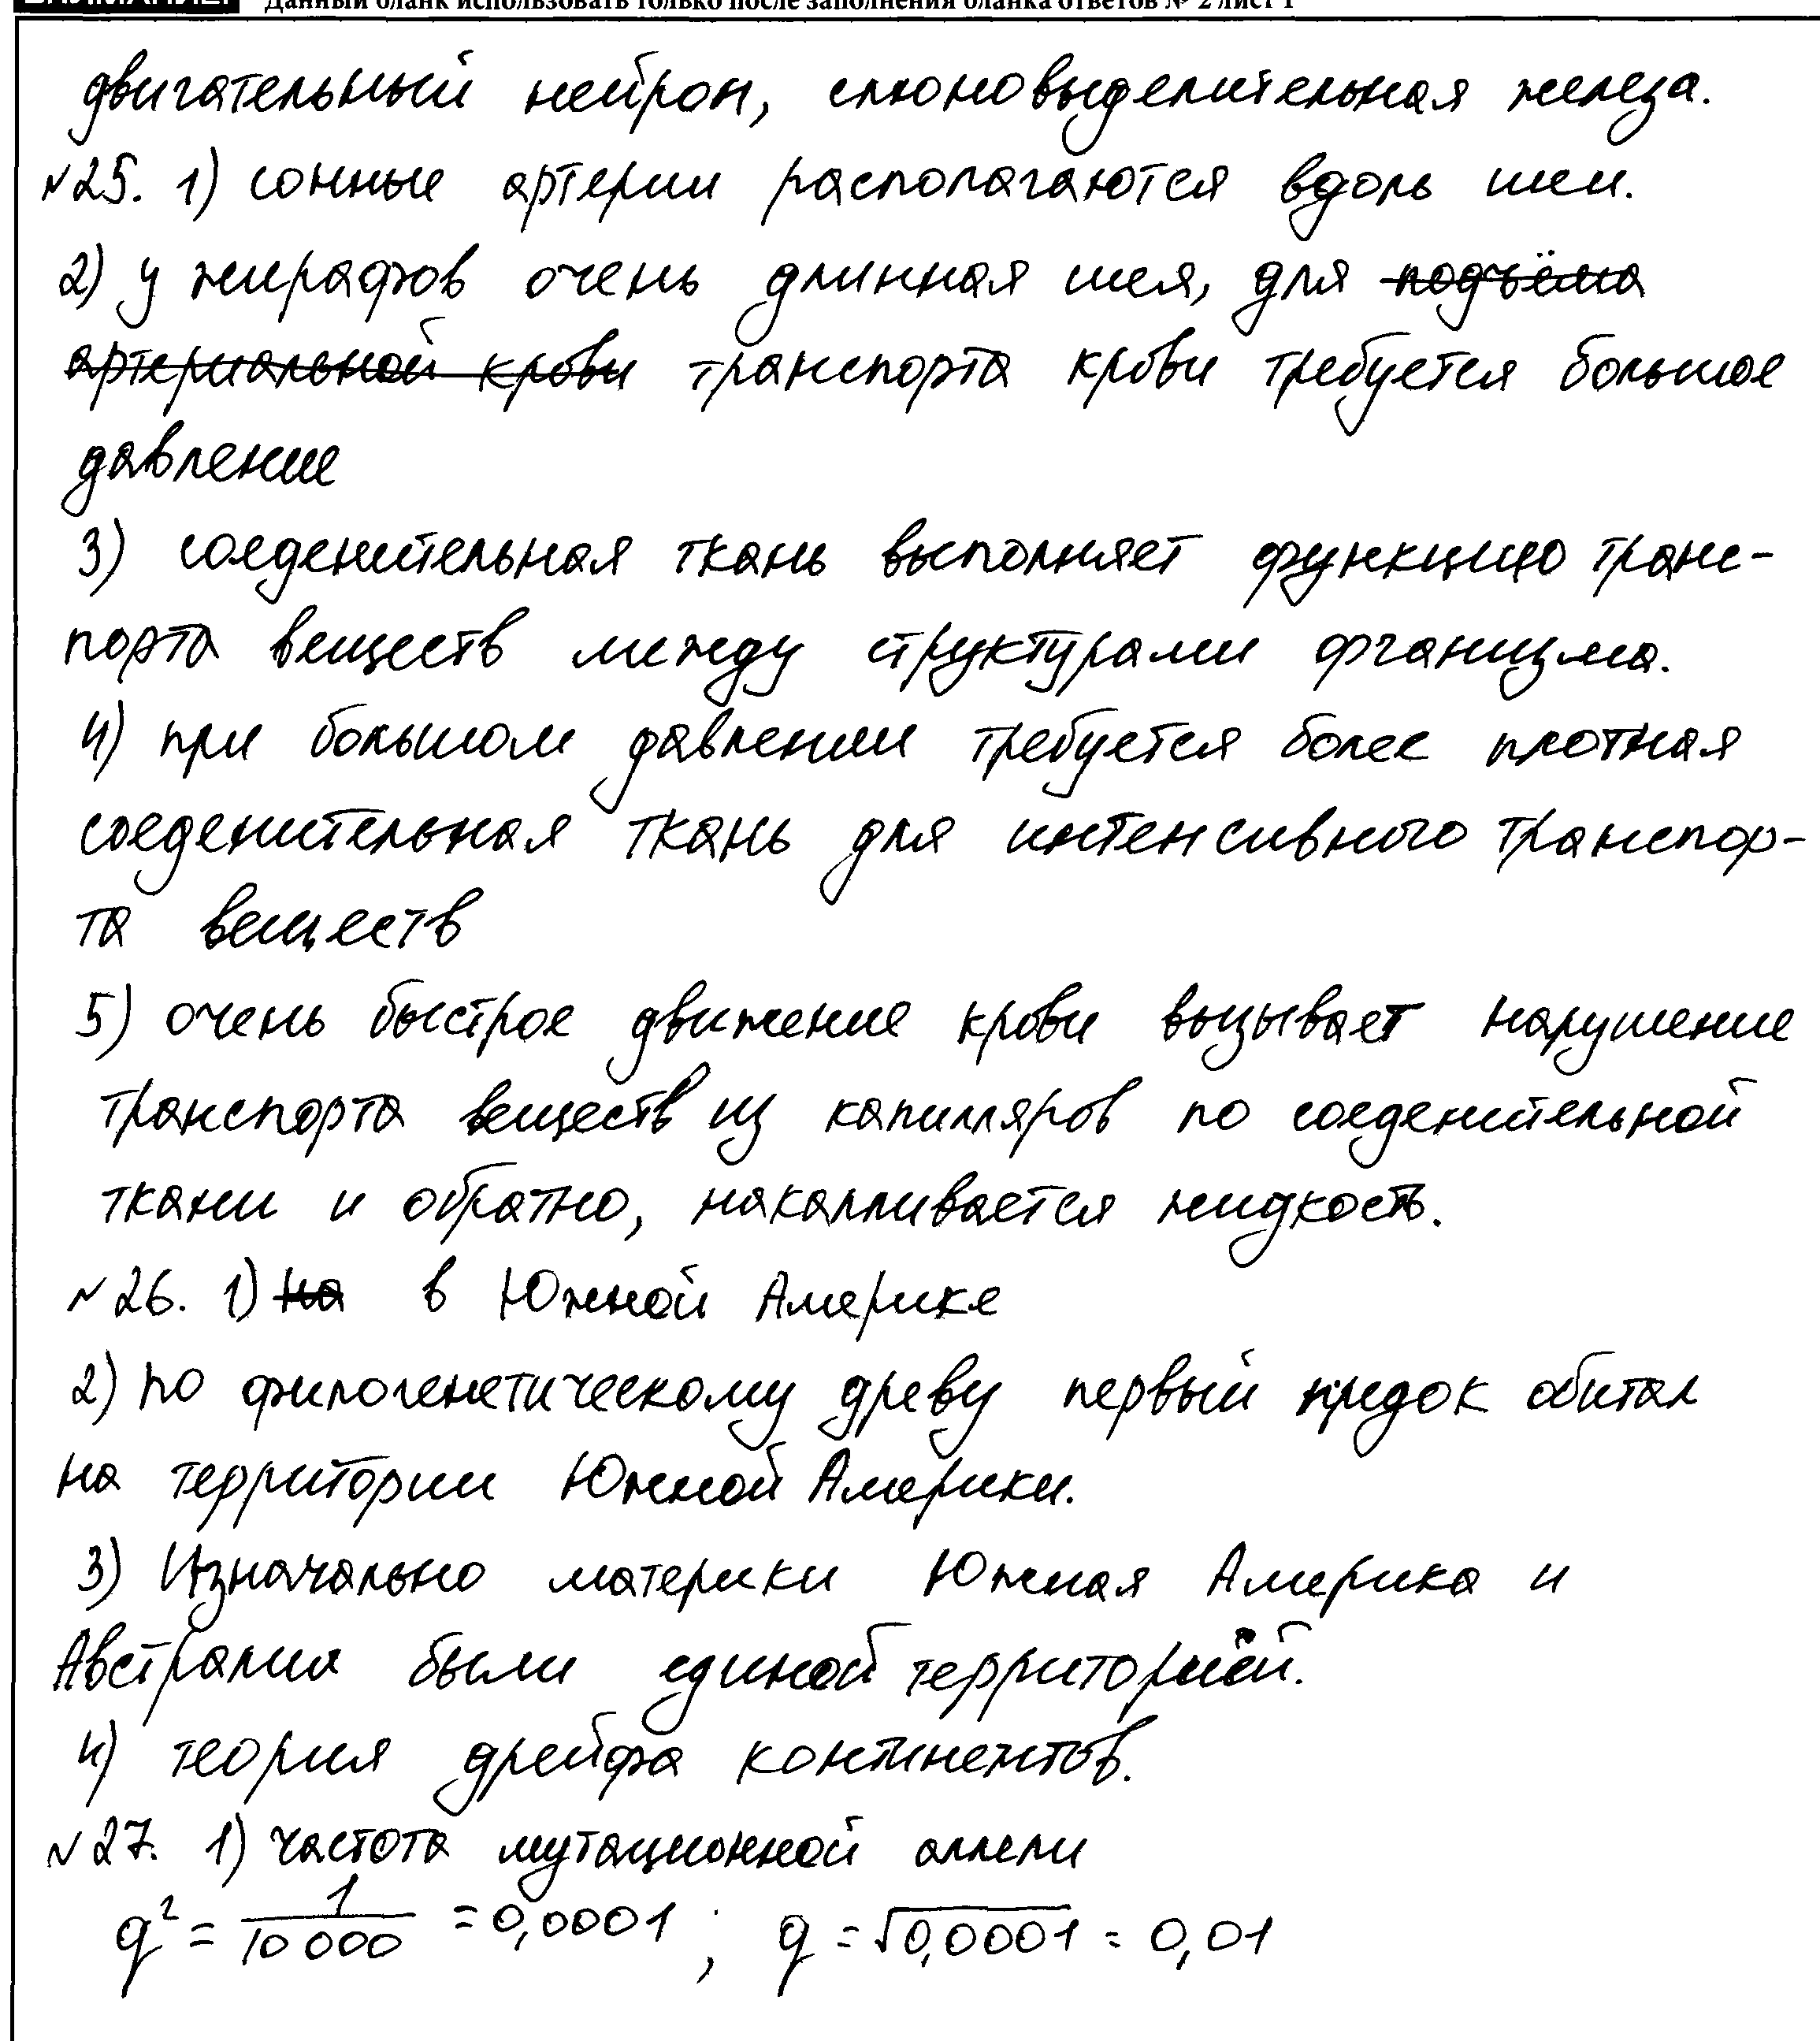 Данный бланк использовать только после заполнения бланка ответов № 2 лист 1
двигательный нейрон, слюновыделительная железа.
№25. 1) сонные артерии располагаются вдоль шеи.
2) у жирафов очень длинная шея, для подъёма
артериальной крови транспорта крови требуется большое
давление
3) соеденительная ткань выполняет функцию транс-
порта веществ между структурами организма.
4) при большом давлении требуется более плотная
соеденительная ткань для интенсивного транспор-
та веществ
5) очень быстрое движение крови вызывает нарушение
транспорта веществ из капилляров по соеденительной
ткани и обратно, накапливается жидкость.
№26. 1) на в Южной Америке
2) по филогенетическому древу первый предок обитал
на территории Южной Америки.
3) Изначально материки Южная Америка и
Австралия были единой территорией.
4) теория дрейфа континентов.
№27. 1) частота мутационной аллели
q² = 1/10 000 = 0,0001 ; q = √0,0001 = 0,01